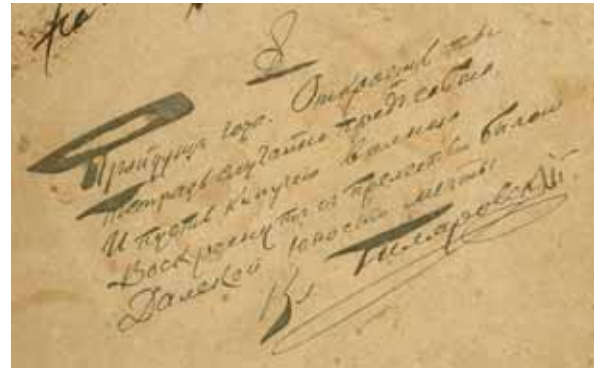 Пройдутъ года. Откроешь ты
Тетрадь случайно предъ собою,
И пусть кипучею волною
Воскреснутъ прелести былой
Далекой юности мечты
Вл. Гиляровскій.